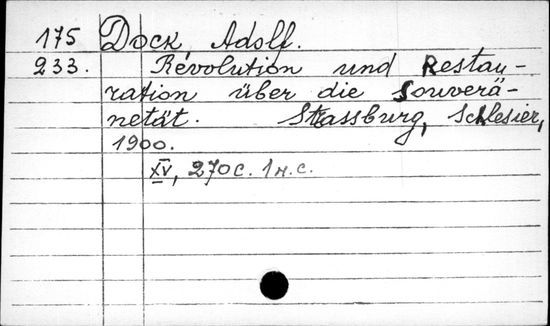 175 Dock, Adolf.
233. Révolution und Restau-
ration über die Souverä-
netät. Strassburg, Schlesier,
1900.
XV, 270 с. 1 н. с.